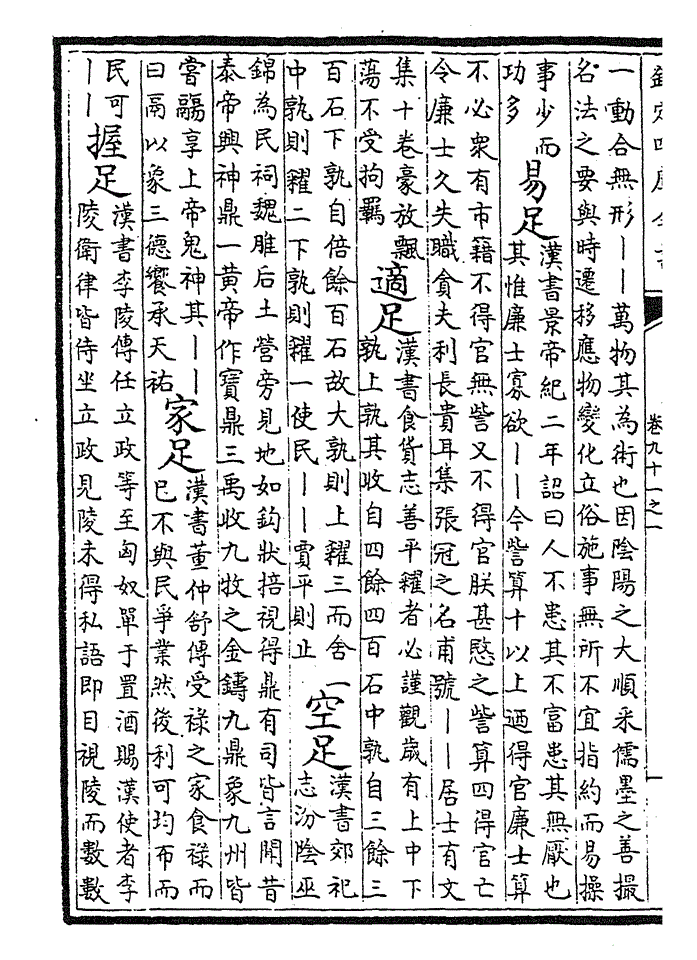 欽定四庫全書
卷九十一之一
一動合無形——萬物其為術也因陰陽之大順采儒墨之善撮
名法之要與時遷移應物變化立俗施事無所不宜指約而易操
事少而
功多
易足
漢書景帝紀二年詔曰人不患其不富患其無厭也
其惟廉士寡欲——今訾算十以上迺得官廉士算
不必衆有市籍不得官無訾又不得官朕甚愍之訾算四得官亡
令廉士久失職貪夫利長貴耳集張冠之名甫號——居士有文
集十卷豪放飄
蕩不受拘羈
適足
漢書食貨志善平糴者必謹觀歲有上中下
孰上孰其收自四餘四百石中孰自三餘三
百石下孰自倍餘百石故大孰則上糴三而舍一
中孰則糴二下孰則糴一使民——賈平則止
空足
漢書郊祀
志汾陰巫
錦為民祠魏脽后土營旁見地如鈎狀掊視得鼎有司皆言聞昔
泰帝興神鼎一黃帝作寶鼎三禹收九牧之金鑄九鼎象九州皆
嘗鬺享上帝鬼神其——
曰鬲以象三德饗承天祐
家足
漢書董仲舒傳受祿之家食祿而
已不與民爭業然後利可均布而
民可
——
握足
漢書李陵傳任立政等至匈奴單于置酒賜漢使者李
陵衛律皆侍坐立政見陵未得私語即目視陵而數數